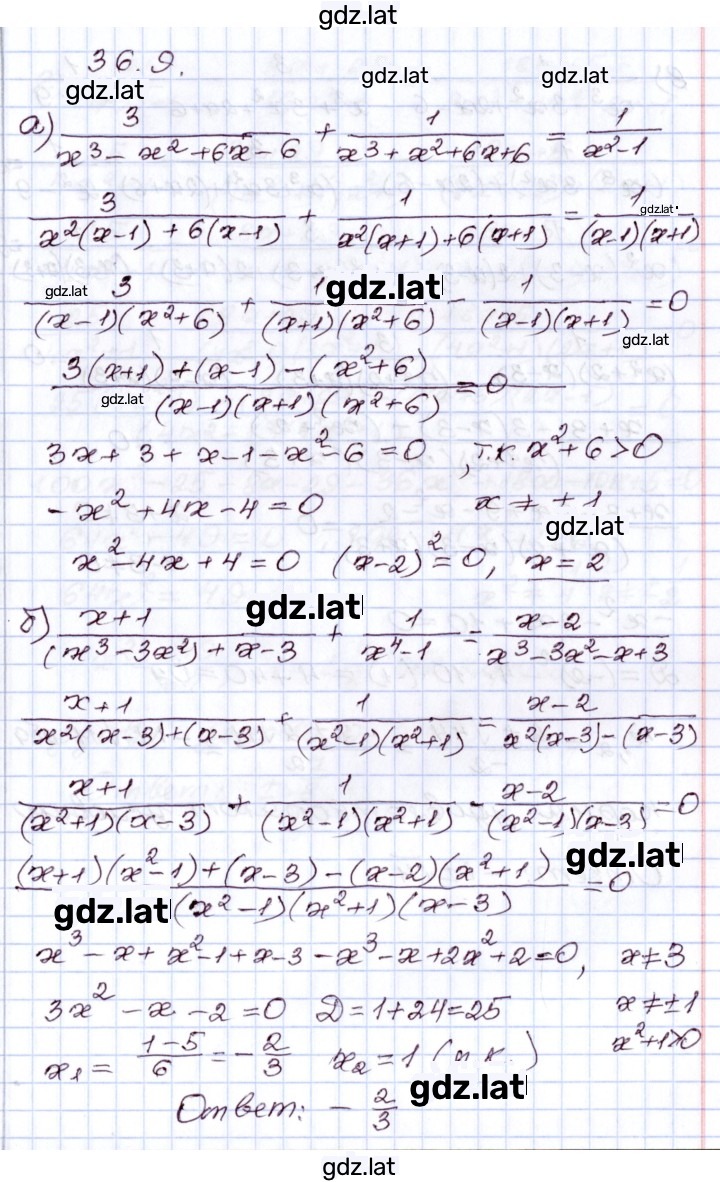 gdz.lat
36.9.
gdz.lat gdz.lat gdz.lat
а) 3/(x³ − x² + 6x − 6) + 1/(x³ + x² + 6x + 6) = 1/(x² − 1)
3/(x²(x−1) + 6(x−1)) + 1/(x²(x+1) + 6(x+1)) = 1/((x−1)(x+1))
gdz.lat
gdz.lat gdz.lat
3/((x−1)(x²+6)) + 1/((x+1)(x²+6)) − 1/((x−1)(x+1)) = 0
gdz.lat
(3(x+1) + (x−1) − (x²+6))/((x−1)(x+1)(x²+6)) = 0
gdz.lat
3x + 3 + x − 1 − x² − 6 = 0, т.к. x² + 6 > 0
−x² + 4x − 4 = 0 x ≠ + 1
gdz.lat
x² − 4x + 4 = 0 (x−2)² = 0, x = 2
gdz.lat
б) (x+1)/((x³ − 3x²) + x − 3) + 1/(x⁴ − 1) = (x−2)/(x³ − 3x² − x + 3)
(x+1)/(x²(x−3) + (x−3)) + 1/((x²−1)(x²+1)) = (x−2)/(x²(x−3) − (x−3))
(x+1)/((x²+1)(x−3)) + 1/((x²−1)(x²+1)) − (x−2)/((x²−1)(x−3)) = 0
((x+1)(x²−1) + (x−3) − (x−2)(x²+1))/((x²−1)(x²+1)(x−3)) = 0
gdz.lat
gdz.lat
x³ − x + x² − 1 + x − 3 − x³ − x + 2x² + 2 = 0, x ≠ 3
3x² − x − 2 = 0 Д = 1 + 24 = 25 x ≠ ±1
x₁ = (1−5)/6 = −2/3 x₂ = 1 (п.к.) x² + 1 > 0
gdz.lat
Ответ: −2/3
gdz.lat